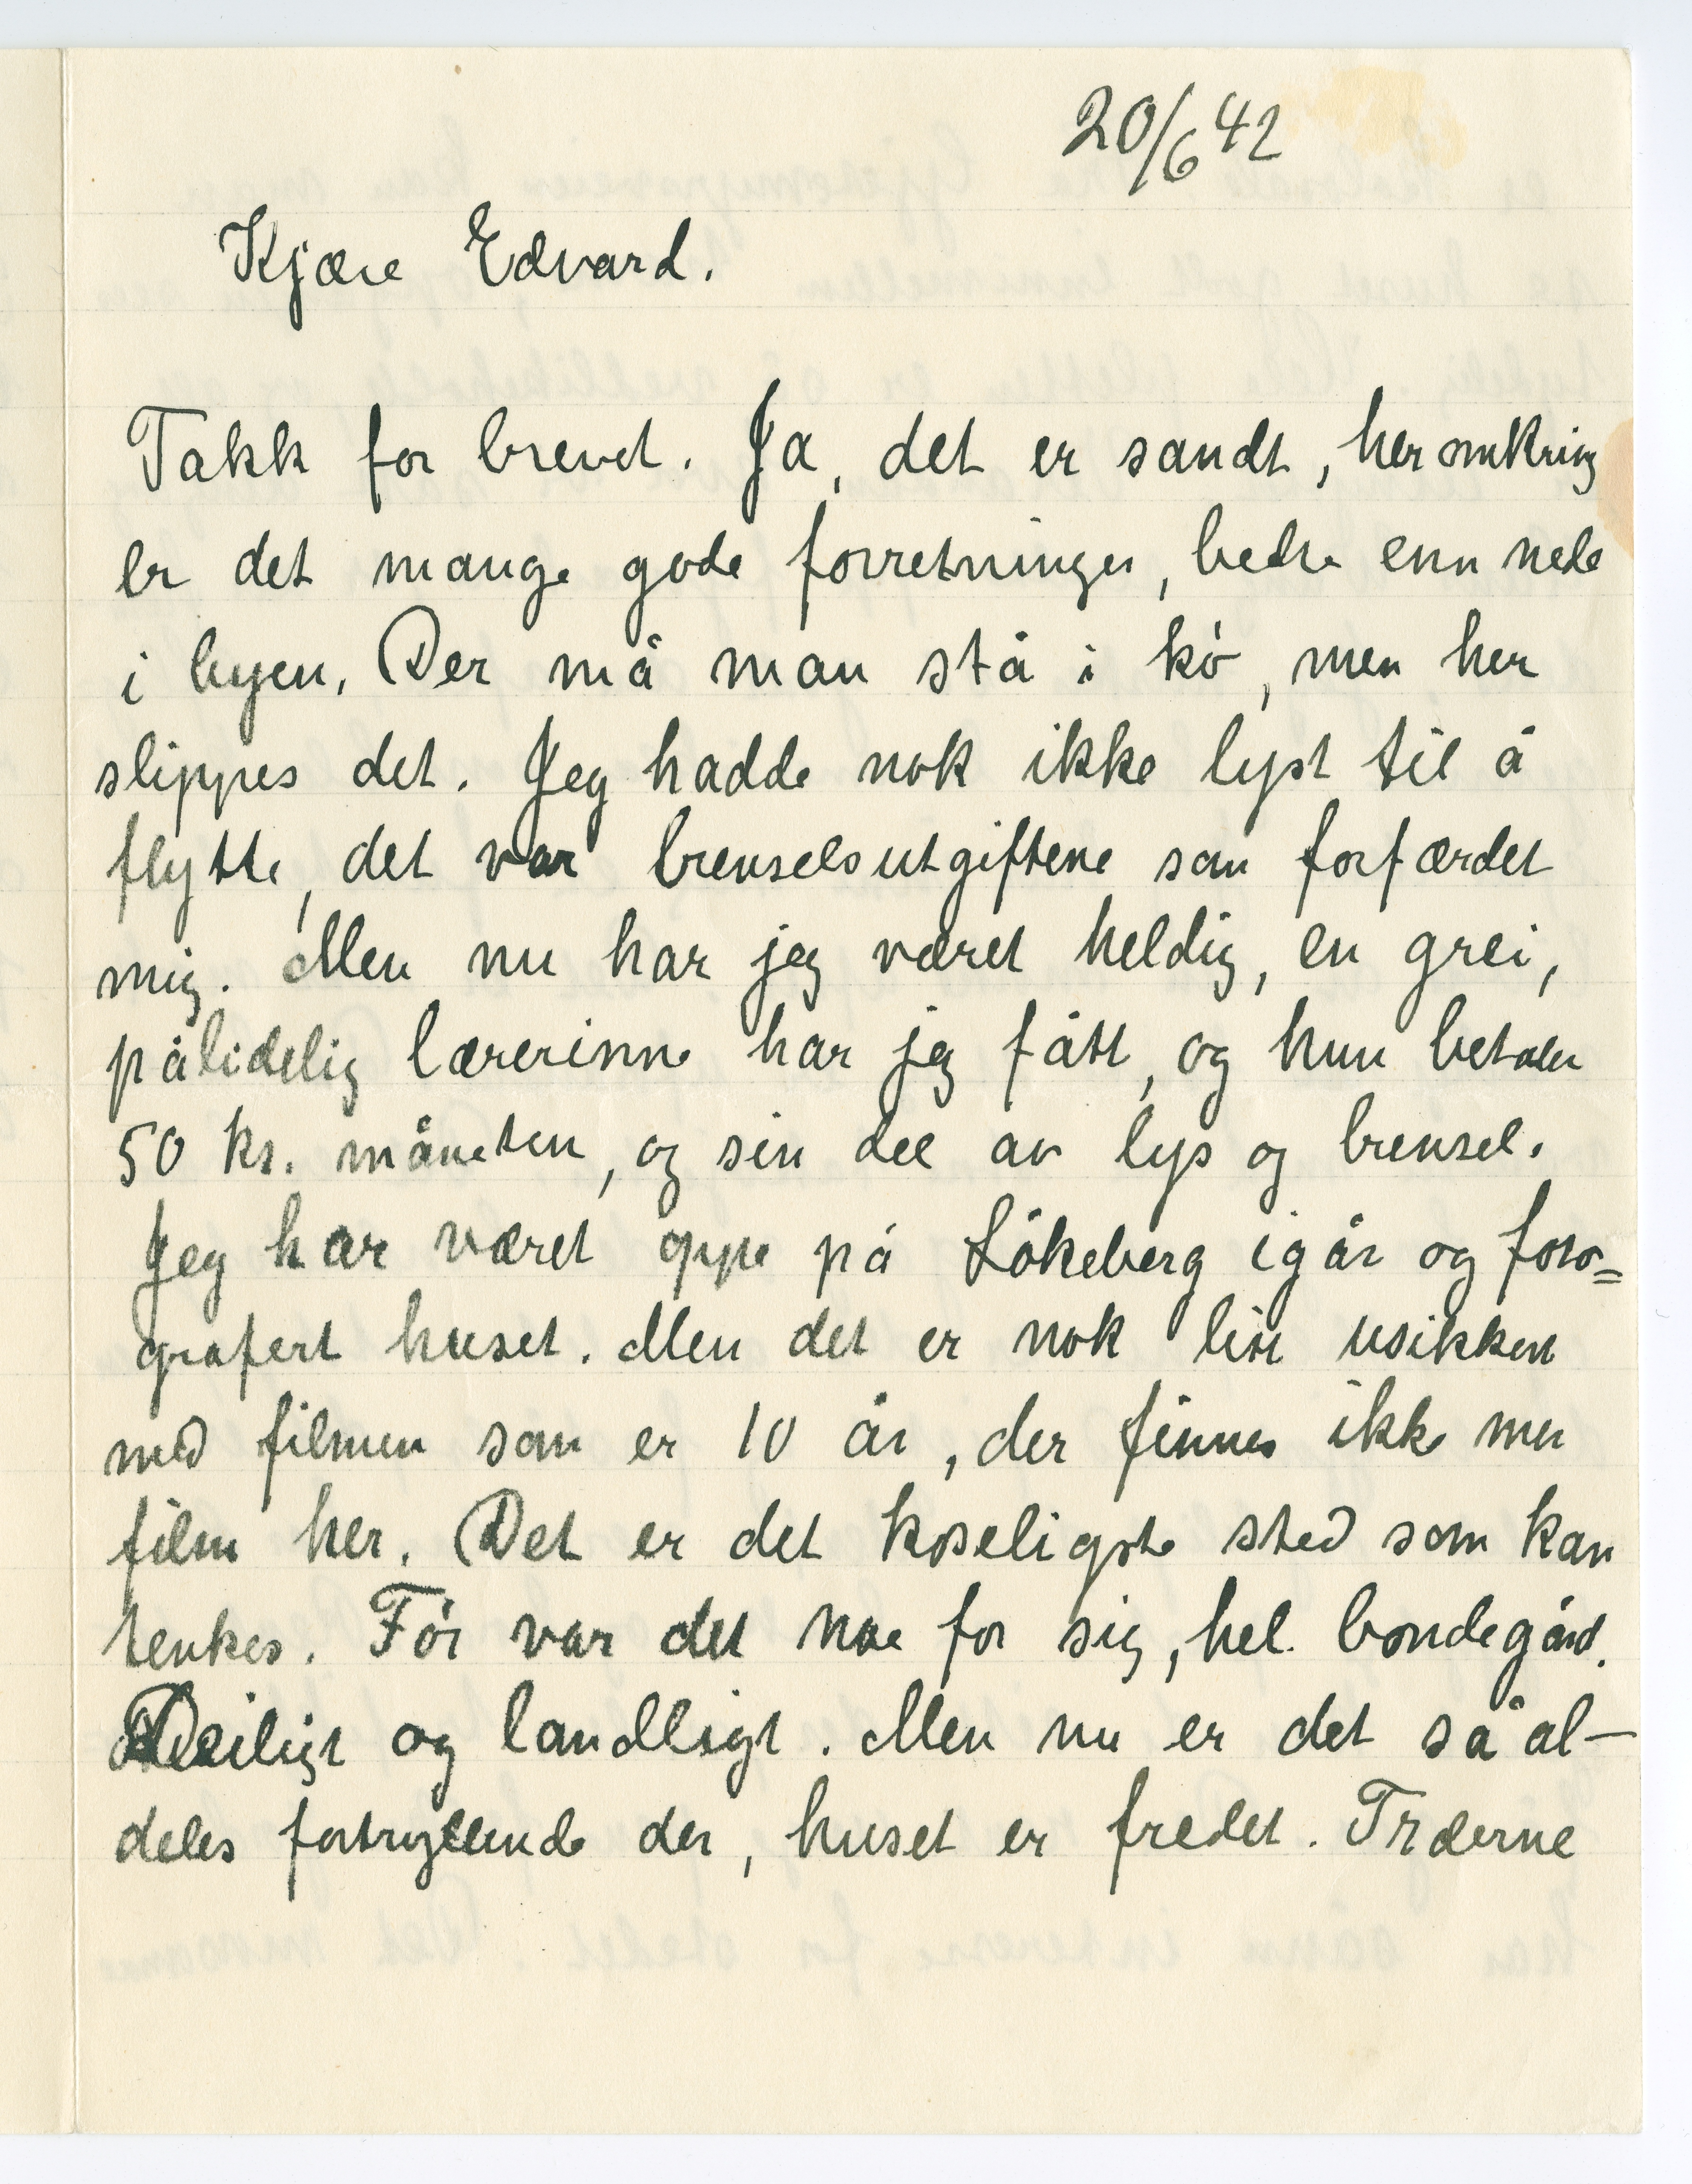 20/6 42
Kjære Edvard.
Takk for brevet. Ja, det er sandt, her omkring
er det mange gode forretninger, bedre enn nede
i byen. Der må man stå i kö, men her
slippes det. Jeg hadde nok ikke lyst til å
flytte, det var brenselsutgiftene som forfærdet
mig. Men nu har jeg været heldig, en grei,
pålidelig lærerinne har jeg fått, og hun betaler
50 kr. måneten, og sin del av lys og brensel.
Jeg har været oppe på Lökeberg igår og foto=
grafert huset. Men det er nok litt usikkert
med filmen som er 10 år, der finnes ikke mer
film her. Det er det koseligste sted som kan
tenkes. För var det noe for sig, hel bondegård.
Deiligt og landligt. Men nu er det så al-
deles fortryllende der, huset er fredet. Trærne